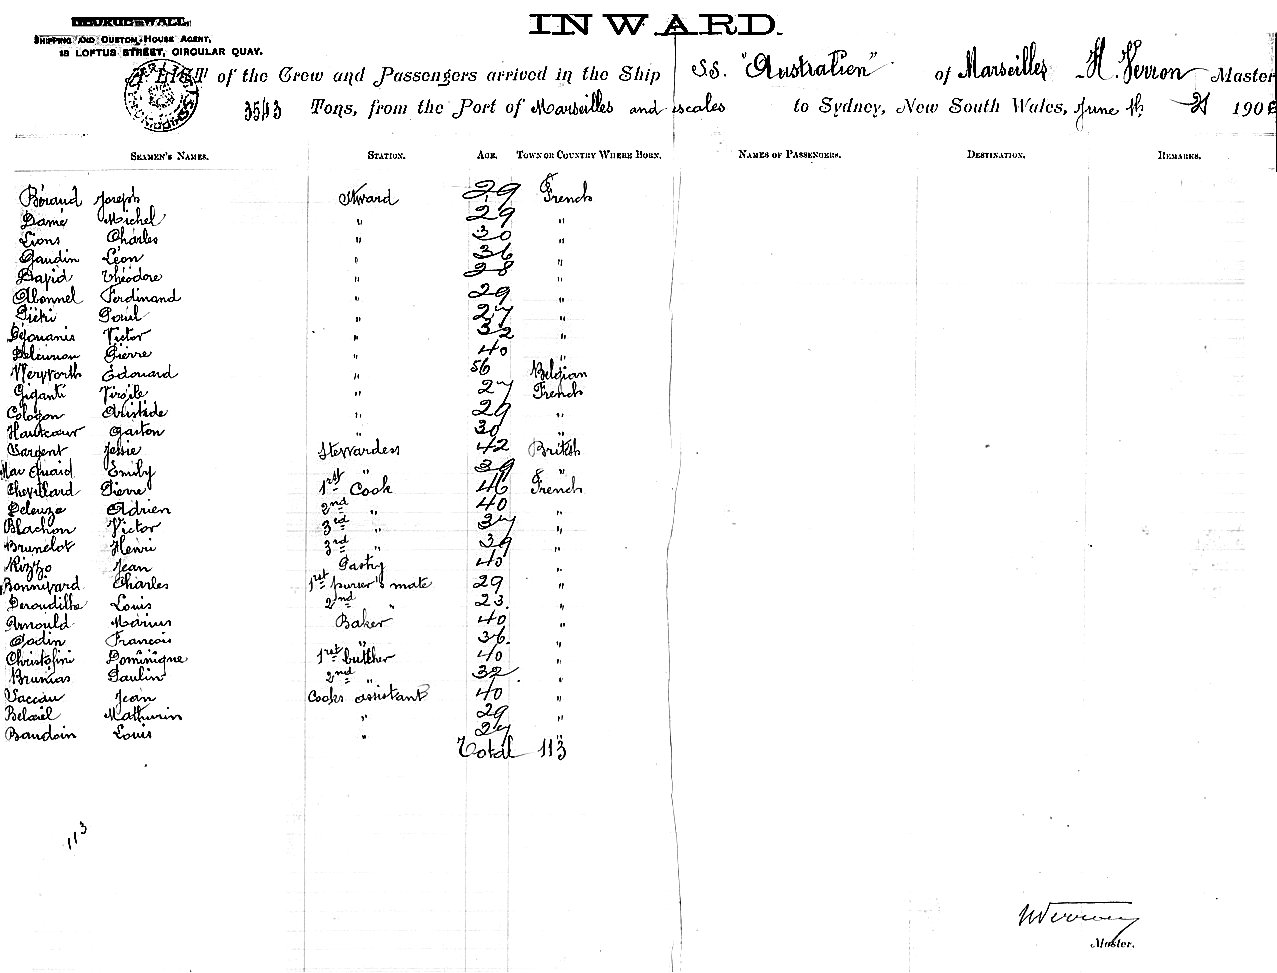 INWARD.
SHIPPING AND CUSTOM HOUSE AGENT,
18 LOFTUS STREET, CIRCULAR QUAY.
A LIST of the Crew and Passengers arrived in the Ship SS. "Australien" of Marseilles H. Verron Master
3543 Tons, from the Port of Marseilles and escales to Sydney, New South Wales, June th 21 190
SEAMEN'S NAMES. STATION. AGE. TOWN OR COUNTRY WHERE BORN. NAMES OF PASSENGERS. DESTINATION. REMARKS.
Béraud Joseph Steward 29 French
Damé Michel " 29 "
Lions Charles " 30 "
Gaudin Léon " 36 "
David Théodore " 28 "
Abonnel Ferdinand " 29 "
Piétri Paul " 27 "
Victor " 32 "
Pierre " 40 "
Edouard " 56 Belgian
Giganti Virgile " 27 French
Cologon Aristide " 29 "
Hautcœur Gaston " 30 "
Sargent Jessie Stewardess 42 British
Mac Quaid Emily " 39 "
Chevillard Pierre 1rst Cook 46 French
Deleuze Adrien 2nd " 40 "
Blachon Victor 3rd " 37 "
Brunelot Henri 3rd " 39 "
Rizzo Jean Pastry 40 "
Bonnivard Charles 1rst purser's mate 29 "
Deroudilhe Louis 2nd " 23 "
Arnould Marius Baker 40 "
Godin Francois " 36 "
Christofini Dominique 1rst butcher 40 "
Brunias Paulin 2nd " 32 "
Vaccau Jean Cooks assistant 40 "
Belail Mathurin " 29 "
Baudoin Louis " 27 "
Total 113
113
Master.